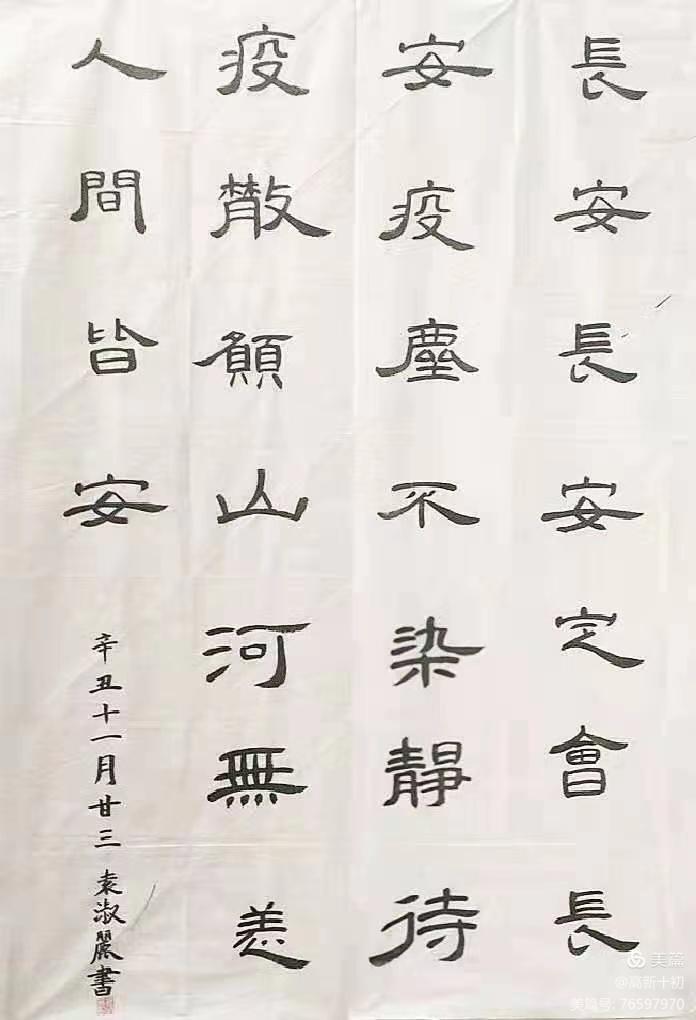 長安長安定會長
安疫塵不染靜待
疫散願山河無恙
人間皆安
辛丑十一月廿三 袁淑麗書
美篇
@高新十初
美篇号: 76597970